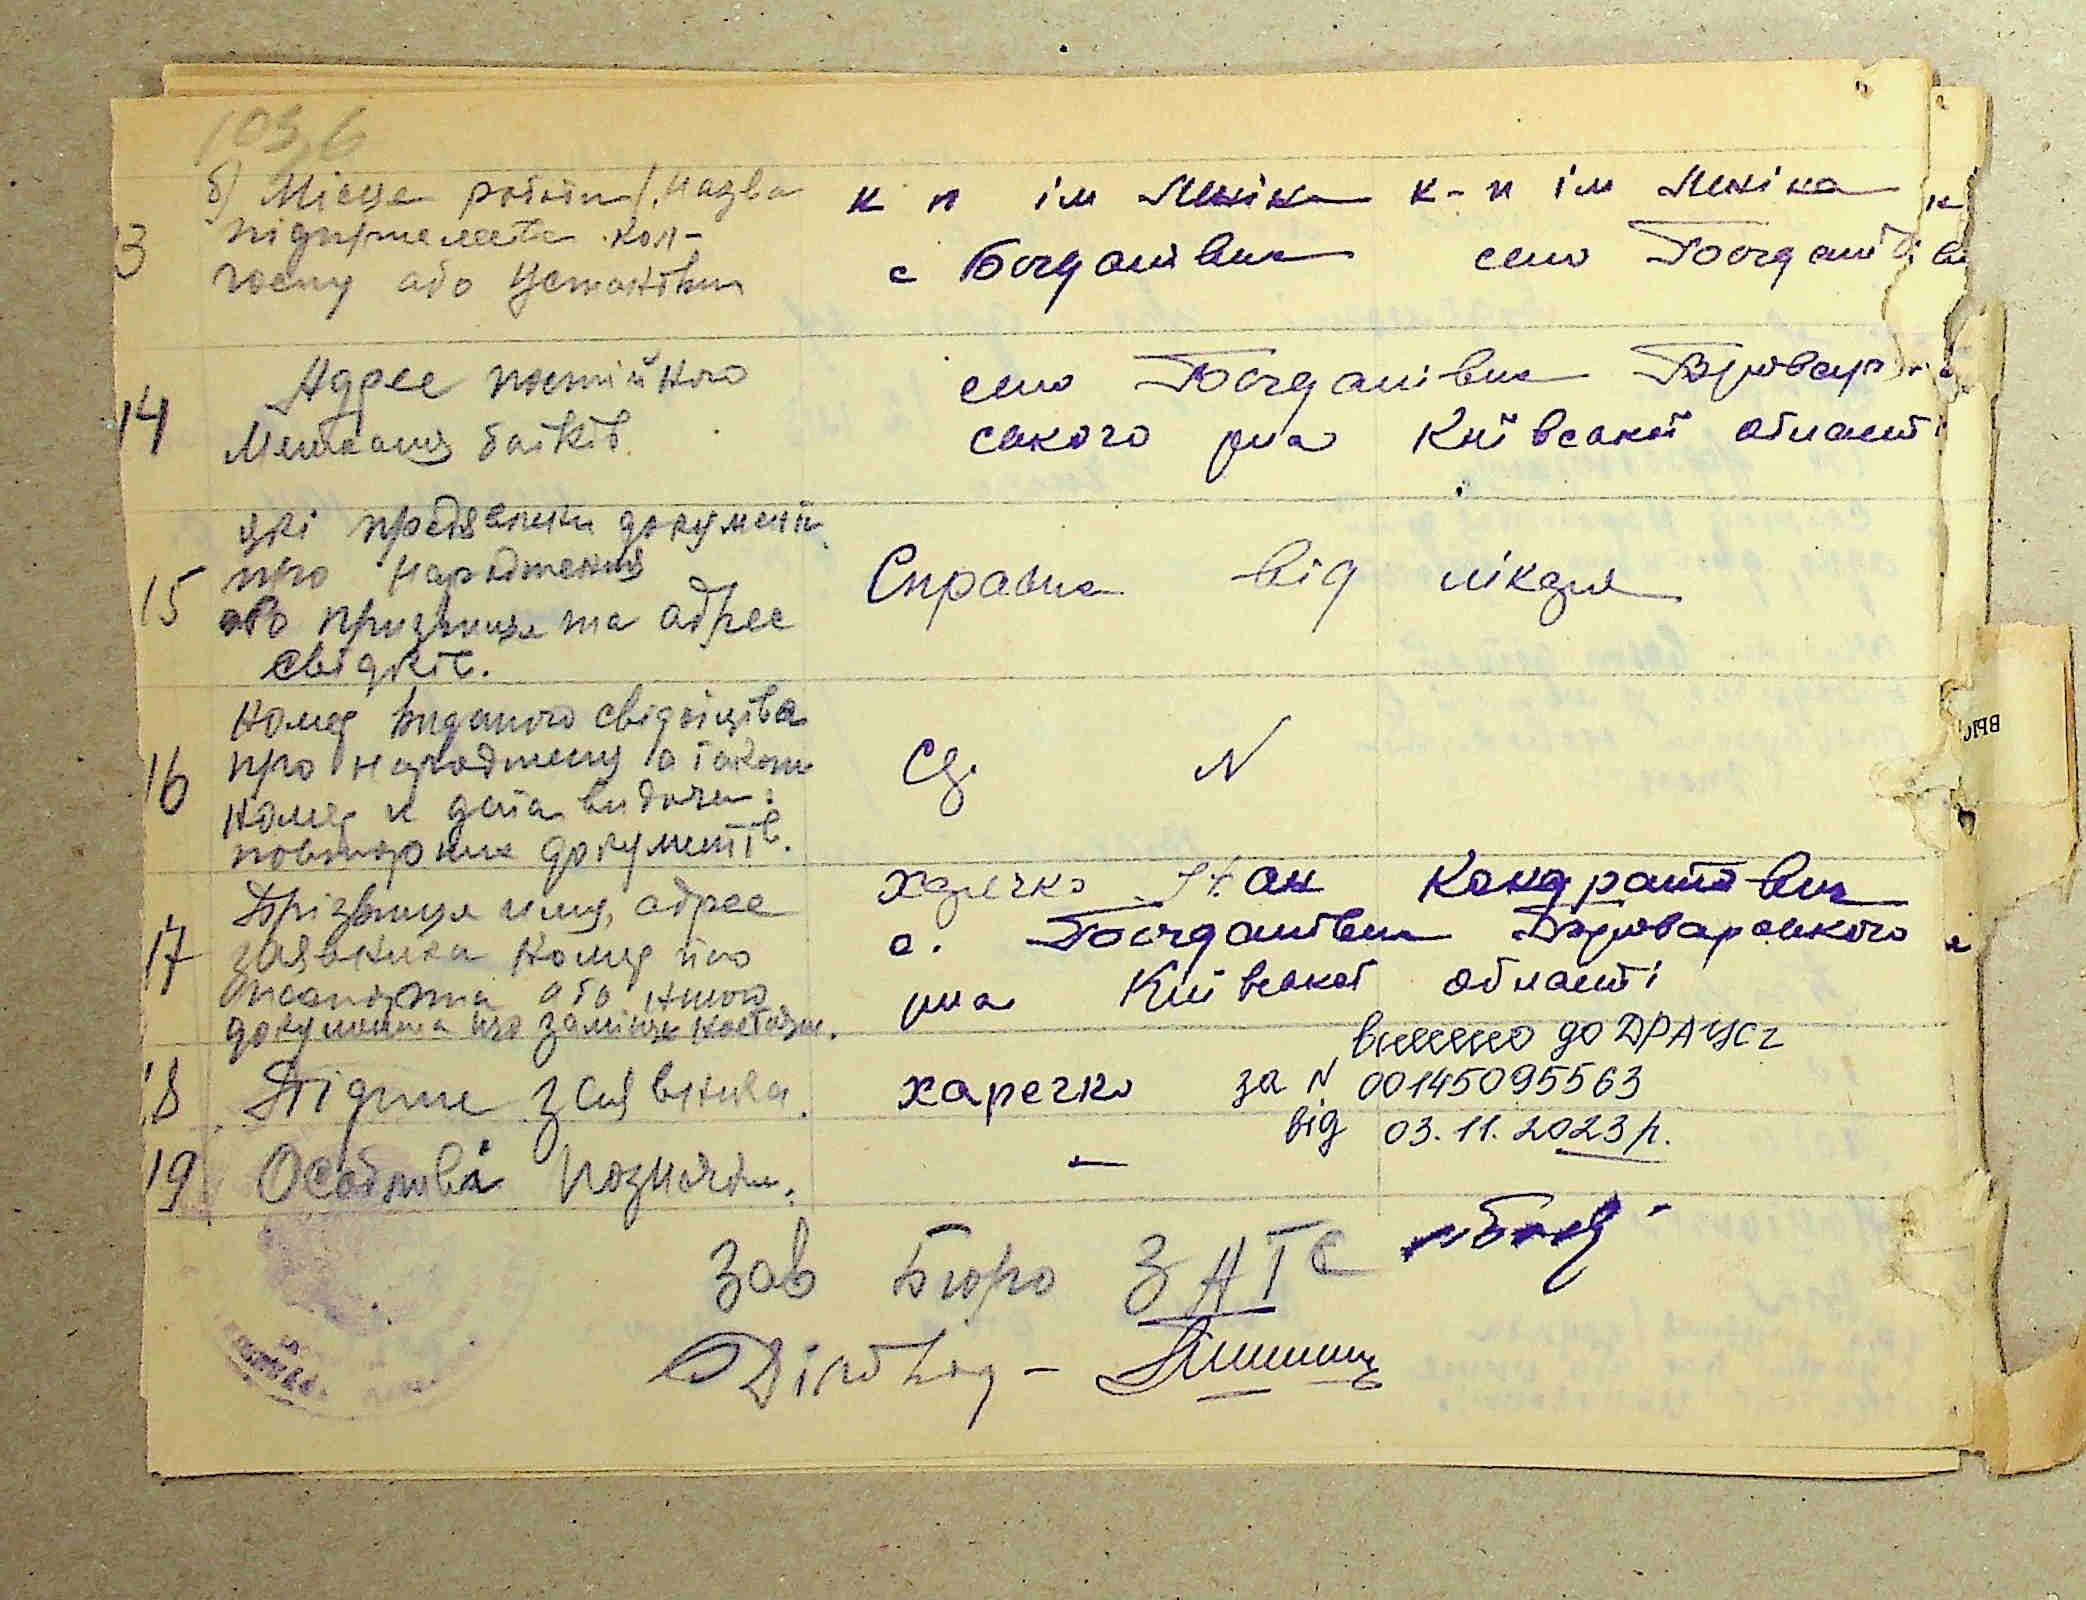 103,6
б) Місце роботи (назва
13 підприємства кол-
госпу або Установи
к п ім Леніна к-п ім Леніна
с Богданівка село Богданівка
14 Адрес постійного
Мешкання батьків.
село Богданівка Бровар
ського р-на Київської області
які предявлени документи
15 про народження
або призвища та адрес
свідків.
Справка від лікаря
Номер виданого свідоцтва
16 про народження а також
номер и дата видачи
повторних документів.
Св. N
Прізвище имя, адрес
17 заявника номер його
паспорта або иного
документа що замінює паспорт.
Харечко Іван Кондратович
с. Богданівка Броварського
р-на Київської області
внесено до ДРАЦСг
18 Підпис заявника.
Харечко за N 00145095563
від 03.11.2023р.
19 Особлові Позначки.
–
Зав Бюро ЗАГС
Діловод –
выс